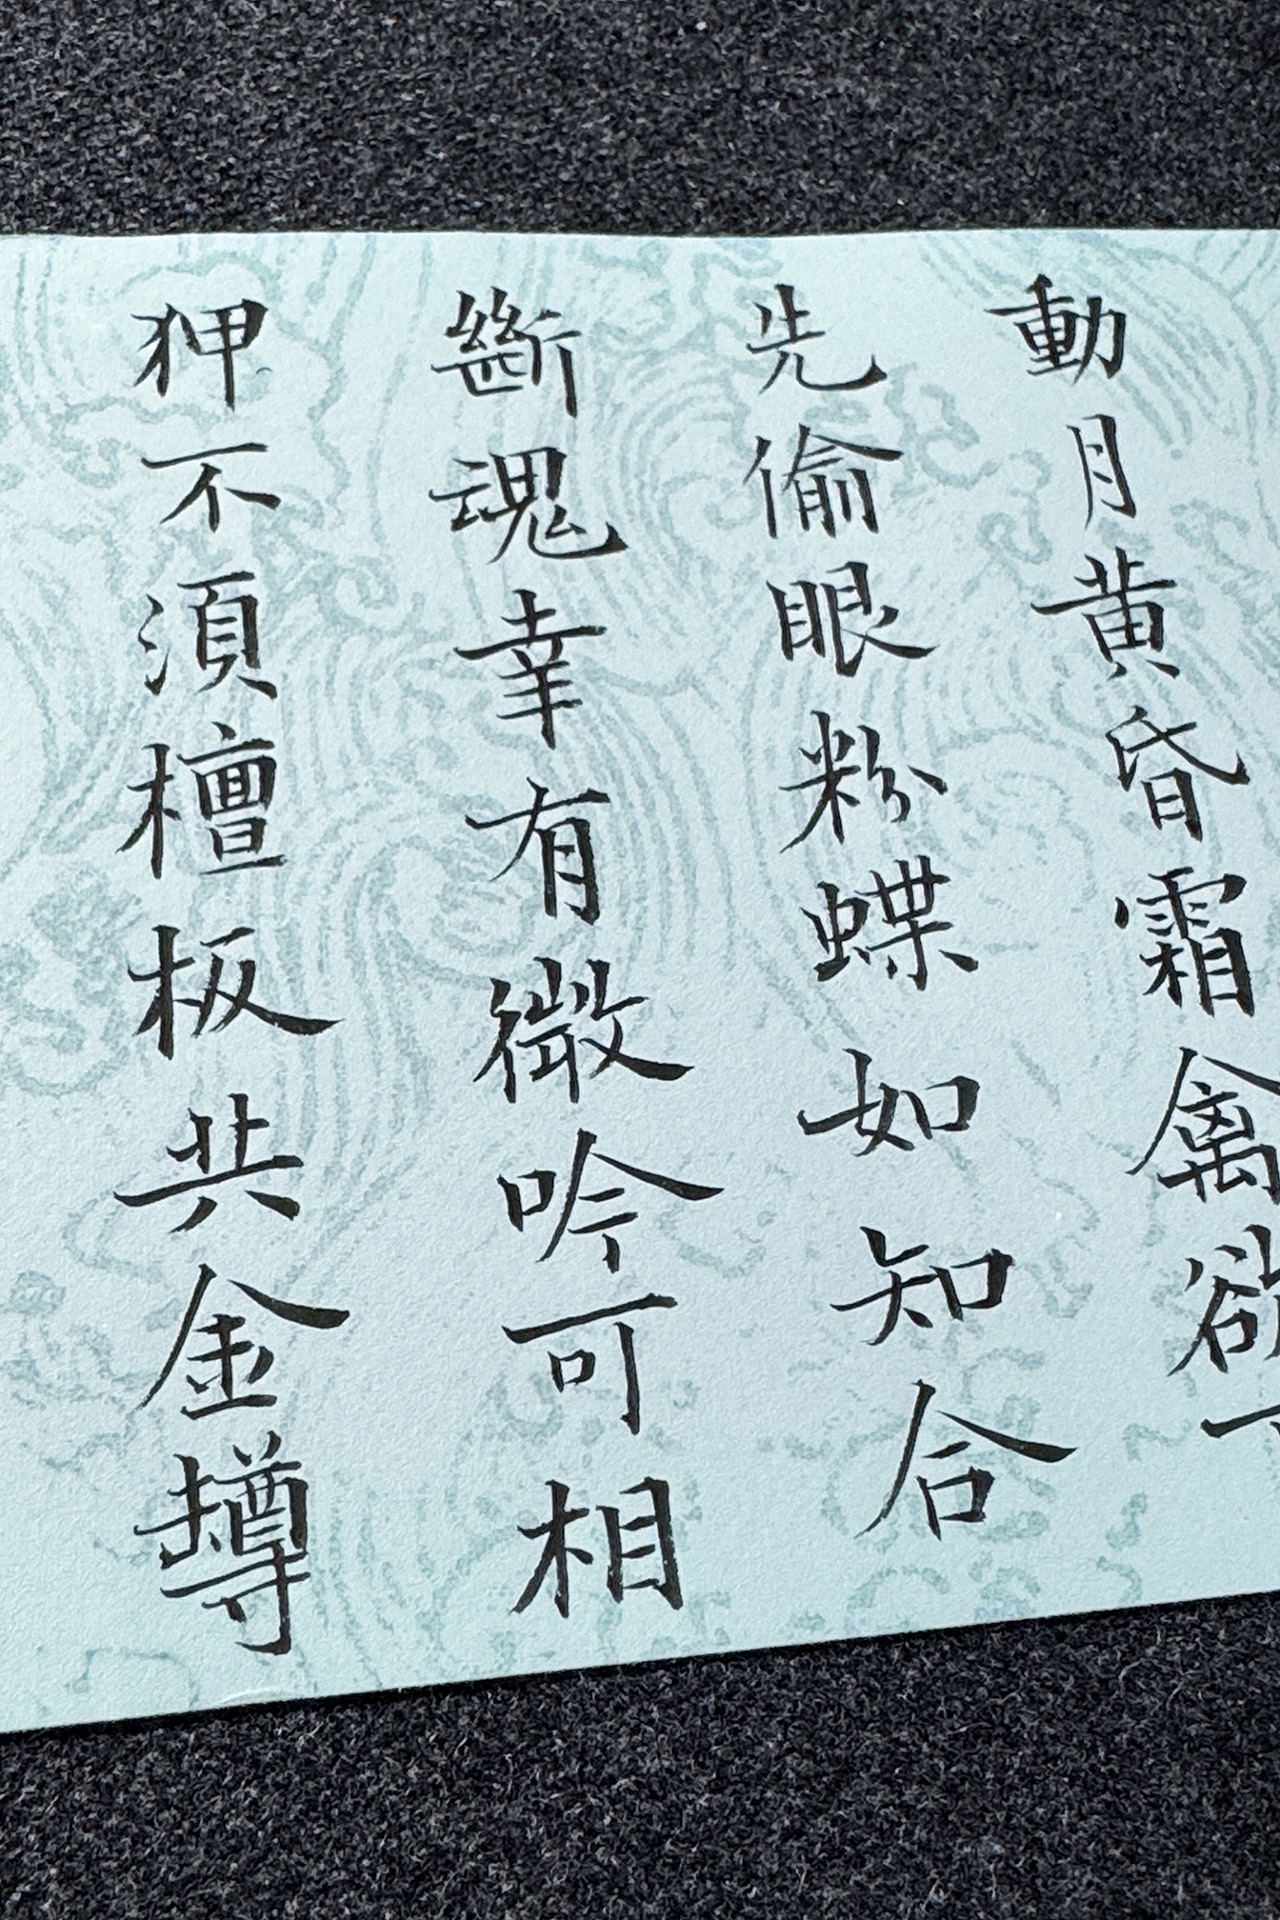 動月黄昏霜禽欲
先偷眼粉蝶如知合
斷魂幸有微吟可相
狎不須檀板共金樽